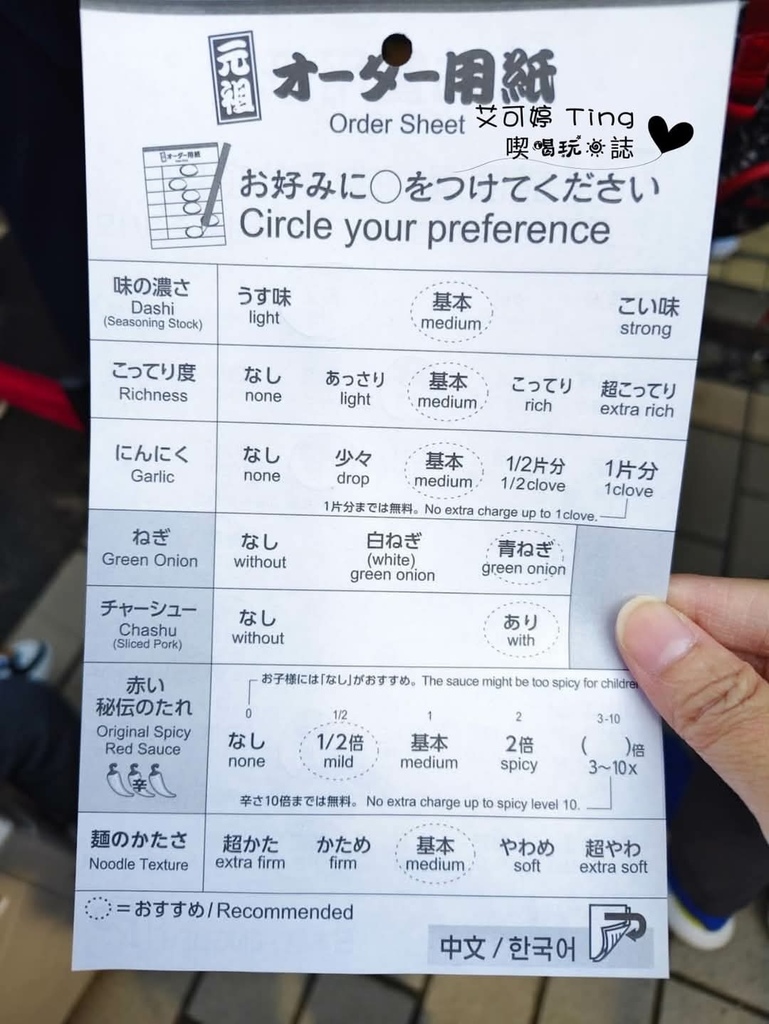 元祖
オーダー用紙
Order Sheet
艾可婷 Ting
喫喝玩樂誌
オーダー用紙
お好みに○をつけてください
Circle your preference
味の濃さ
Dashi
(Seasoning Stock)
うす味 基本 こい味
light medium strong
こってり度
Richness
なし あっさり 基本 こってり 超こってり
none light medium rich extra rich
にんにく
Garlic
なし 少々 基本 1/2片分 1片分
none drop medium 1/2clove 1clove
1片分までは無料。No extra charge up to 1clove.
ねぎ
Green Onion
なし 白ねぎ 青ねぎ
without (white) green onion green onion
チャーシュー
Chashu
(Sliced Pork)
なし あり
without with
赤い
秘伝のたれ
Original Spicy
Red Sauce
辛
お子様には「なし」がおすすめ。The sauce might be too spicy for childre
0 1/2 1 2 3-10
なし 1/2倍 基本 2倍 ( )倍
none mild medium spicy 3〜10x
辛さ10倍までは無料。No extra charge up to spicy level 10.
麺のかたさ
Noodle Texture
超かた かため 基本 やわめ 超やわ
extra firm firm medium soft extra soft
=おすすめ/Recommended
中文 / 한국어